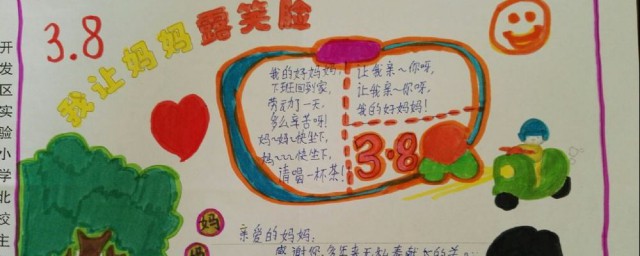 3.8
我让妈妈露笑脸
开发区实验小学北校
我的好妈妈,
下班回到家,
劳动了一天,
多么辛苦呀!
妈~妈~快坐下,
快坐下,
请喝一杯茶!
让我亲~你呀,
让我亲~你呀,
我的好妈妈!
3·8
妈
亲爱的妈妈:
感谢您